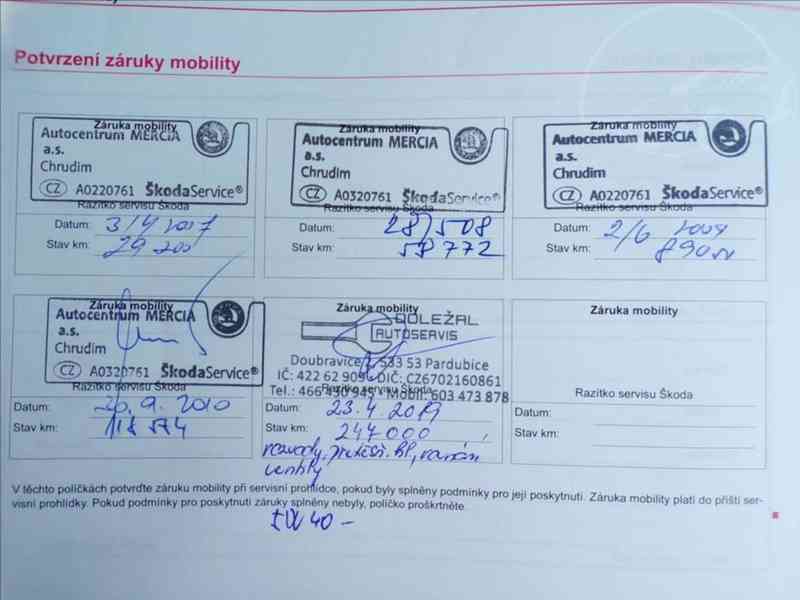 Potvrzení záruky mobility
Záruka mobility
Autocentrum MERCIA
a.s.
Chrudim
CZ A0220761 ŠkodaService®
Razítko servisu Škoda
Datum: 3/4 2007
Stav km: 29 200
Záruka mobility
Autocentrum MERCIA
a.s.
Chrudim
CZ A0320761 ŠkodaService®
Razítko servisu Škoda
Datum: 28/508
Stav km: 58 772
Záruka mobility
Autocentrum MERCIA
a.s.
Chrudim
CZ A0220761 ŠkodaService®
Razítko servisu Škoda
Datum: 2/6 2009
Stav km:
Záruka mobility
Autocentrum MERCIA
a.s.
Chrudim
CZ A0320761 ŠkodaService®
Razítko servisu Škoda
Datum: 20.9.2010
Stav km:
Záruka mobility
DOLEŽAL
AUTOSERVIS
Doubravice 533 53 Pardubice
IČ: 422 62 909 DIČ: CZ6702160861
Razítko servisu Škoda
Tel.: 466 430 945 Mobil: 603 473 878
Datum: 23.4.2019
Stav km: 247000
rozvody,
ventily
Záruka mobility
Razítko servisu Škoda
Datum:
Stav km:
V těchto políčkách potvrďte záruku mobility při servisní prohlídce, pokud byly splněny podmínky pro její poskytnutí. Záruka mobility platí do příští ser-
visní prohlídky. Pokud podmínky pro poskytnutí záruky splněny nebyly, políčko proškrtněte.